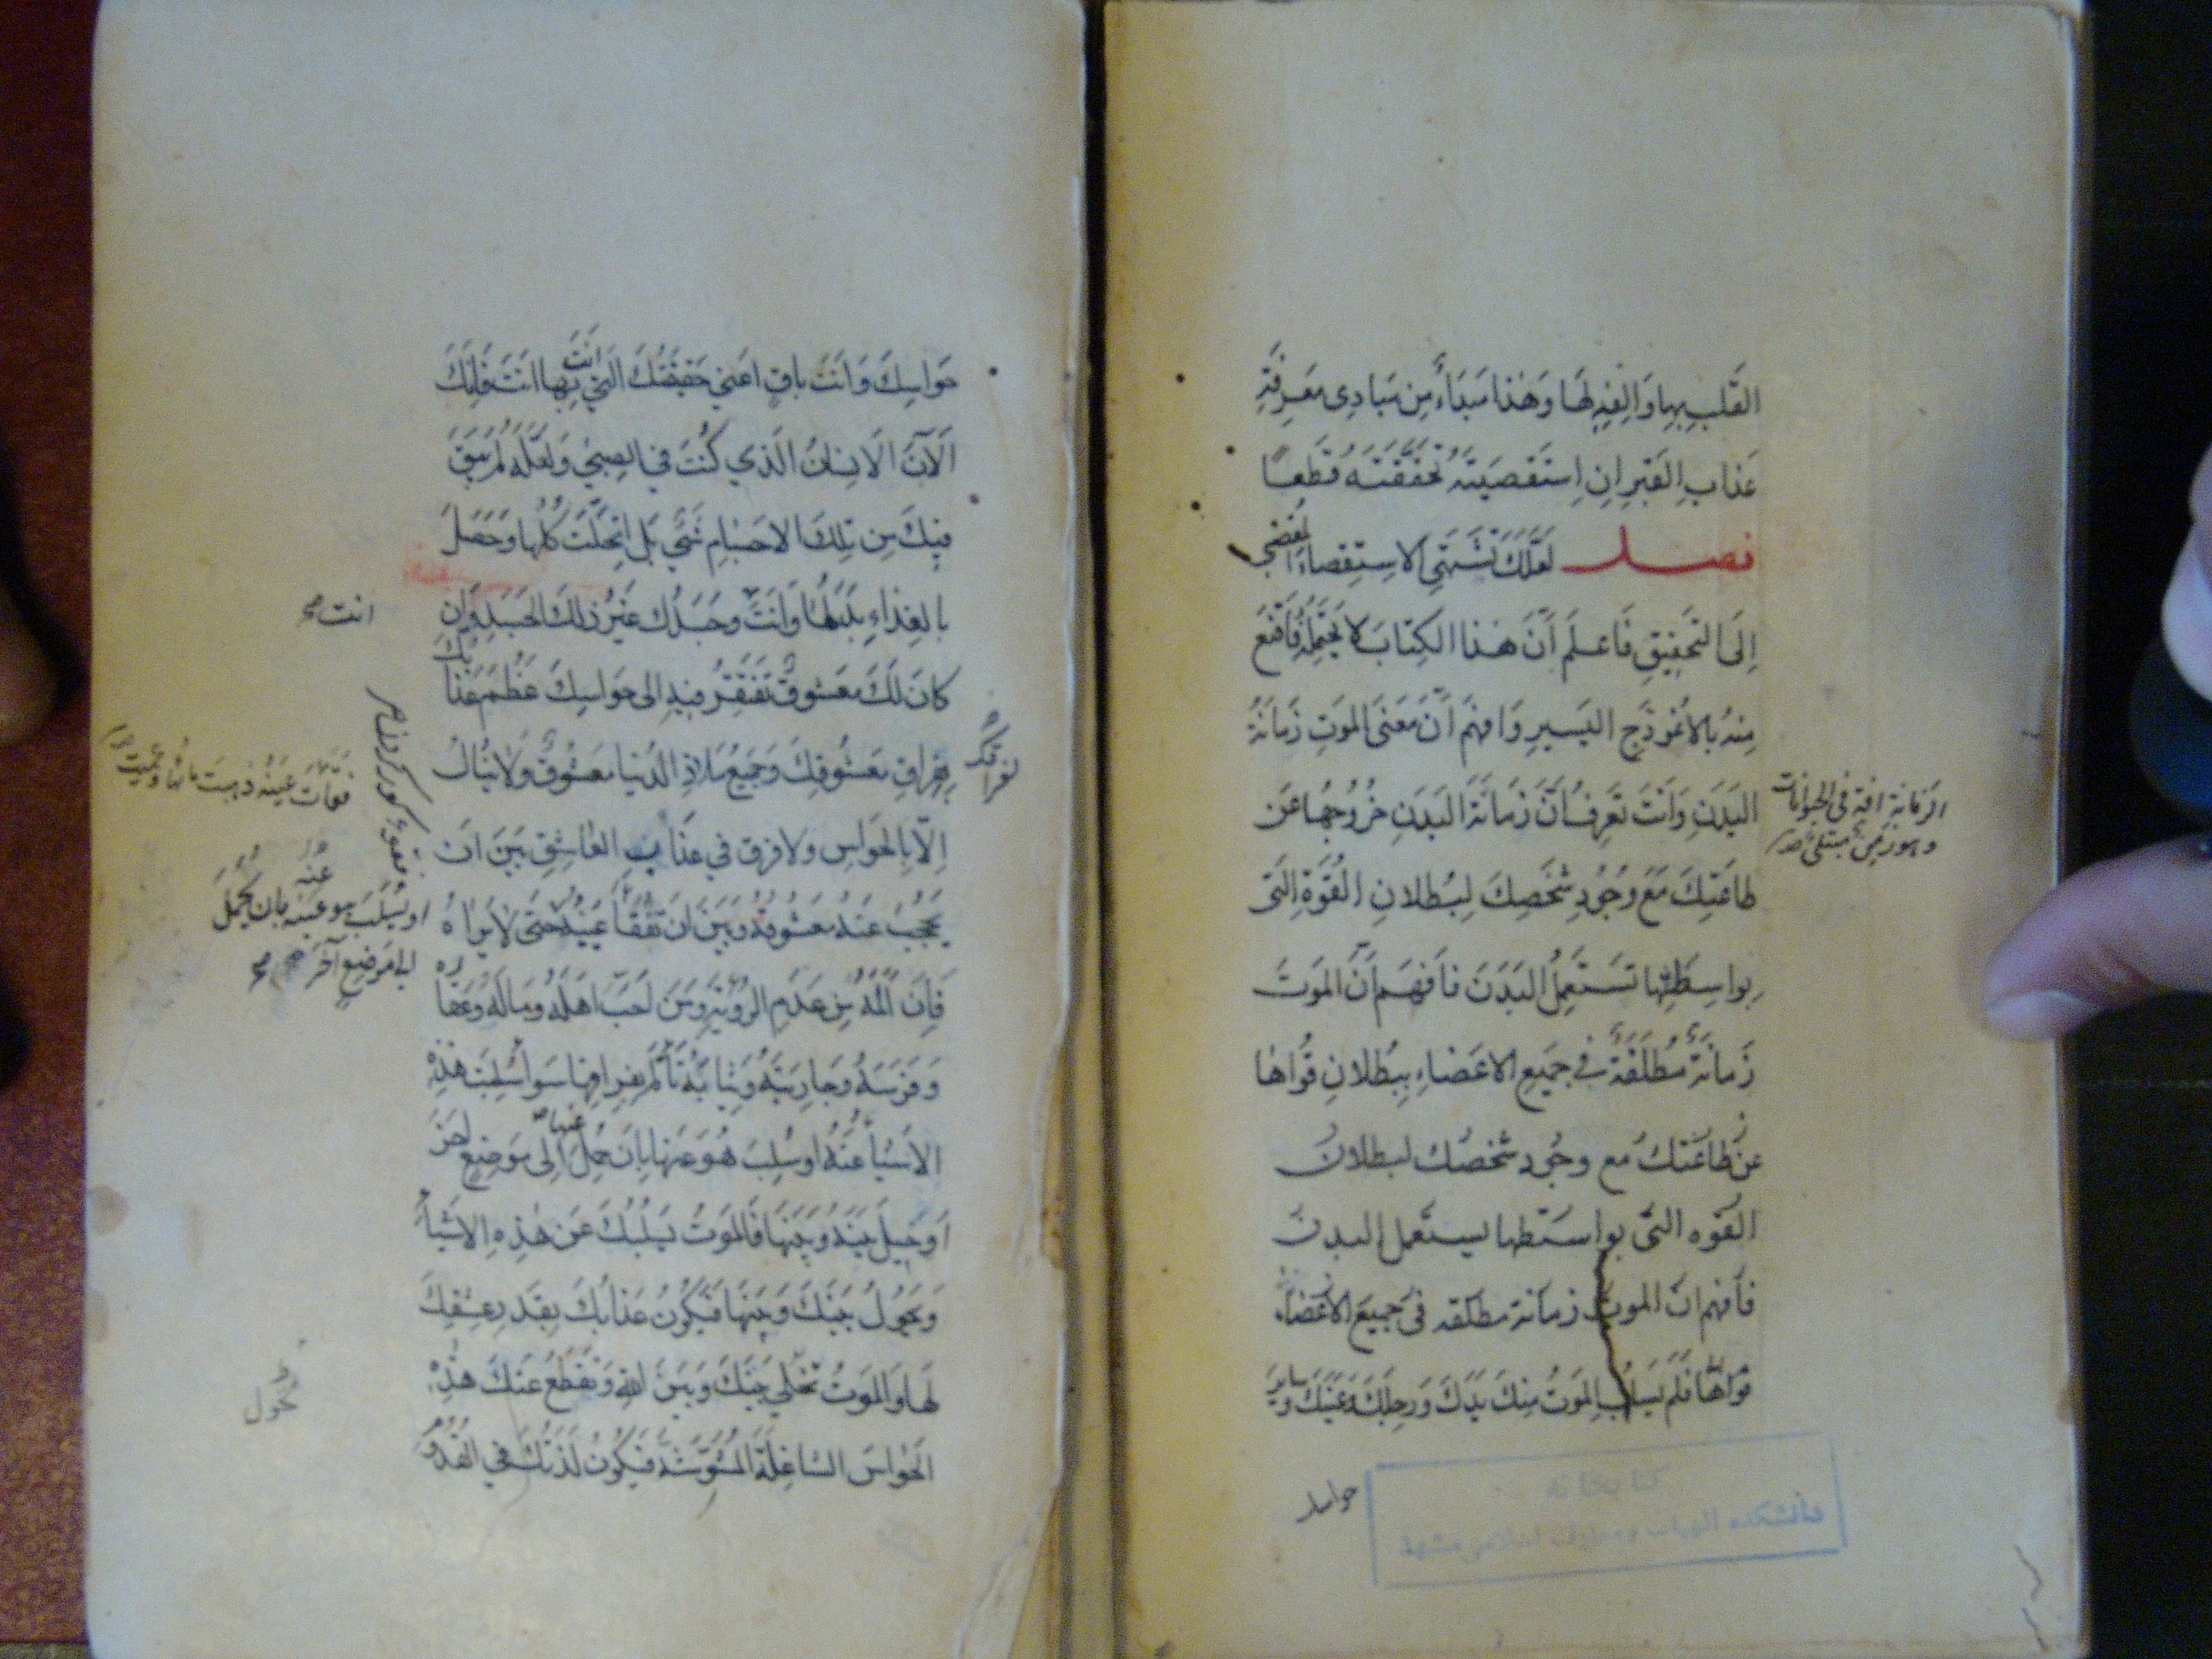 القلب بها والفه لها وهذا مبداء من مبادى معرفة
عذاب القبر ان استقصيته تحققته قطعا
فصل لعلك تشتهى الاستقصاء المفضى
إلى التحقيق فاعلم أن هذا الكتاب لا يحتمله فاقنع
منه بالانموذج اليسير وافهم أن معنى الموت زمانة
البدن وأنت تعرف أن زمانة البدن خروجها عن
طاعتك مع وجود شخصك لبطلان القوة التى
بواسطتها تستعمل البدن فافهم أن الموت
زمانة مطلقة في جميع الاعضاء ببطلان قواها
عن طاعتك مع وجود شخصك لبطلان
القوه التى بواسطتها يستعمل البدن
فافهم ان الموت زمانة مطلقه فى جميع الاعضاء
قواها فلم يسلب الموت منك يدك ورجلك وعينك وساير
الزمانة افة فى الحيوانات
وهو زمن مبتلى
حواسك
كتابخانه
دانشكده الهيات ومعارف اسلامى مشهد
حواسك وأنت باق اعني حقيقتك التي انت بها انت فانك
الآن الانسان الذي كنت في الصبى ولعله لم يبق
فيك من تلك الاجسام شئ بل انحلت كلها وحصل
بالغذاء بدلها وأنت وجسدك غير ذلك الجسد وان
كان لك معشوق تفتقر فيه الى حواسك عظم عذابك
بفراق معشوقك وجميع ملاذ الدنيا معشوق ولا ينال
الا بالحواس ولا فرق في عذاب العاشق بين ان
يحجب عنه معشوقه وبين ان تفقأ عينه حتى لا يراه
فان ألمه من عدم الرؤية ومن احب اهله وماله وعقاره
وفرسه وجاريته وثيابه تألم بفراقها سواء سلبت هذه
الاشياء عنه او سلب هو عنها بان حمل عنها الى موضع اخر
او حيل بينه وبينها فالموت يسلبك عن هذه الاشياء
ويحول بينك وبينها فيكون عذابك بقدر عشقك
لها والموت تخلي بينك وبين الله وتقطع عنك هذه
الحواس الشاغلة المشوشة فيكون لذتك في القدوم
انت صح
لفراقك
فقأت عينه ذهبت ماؤها وعميت
او يسلب هو عنه بان يحمل
الى موضع آخر صح
تحول